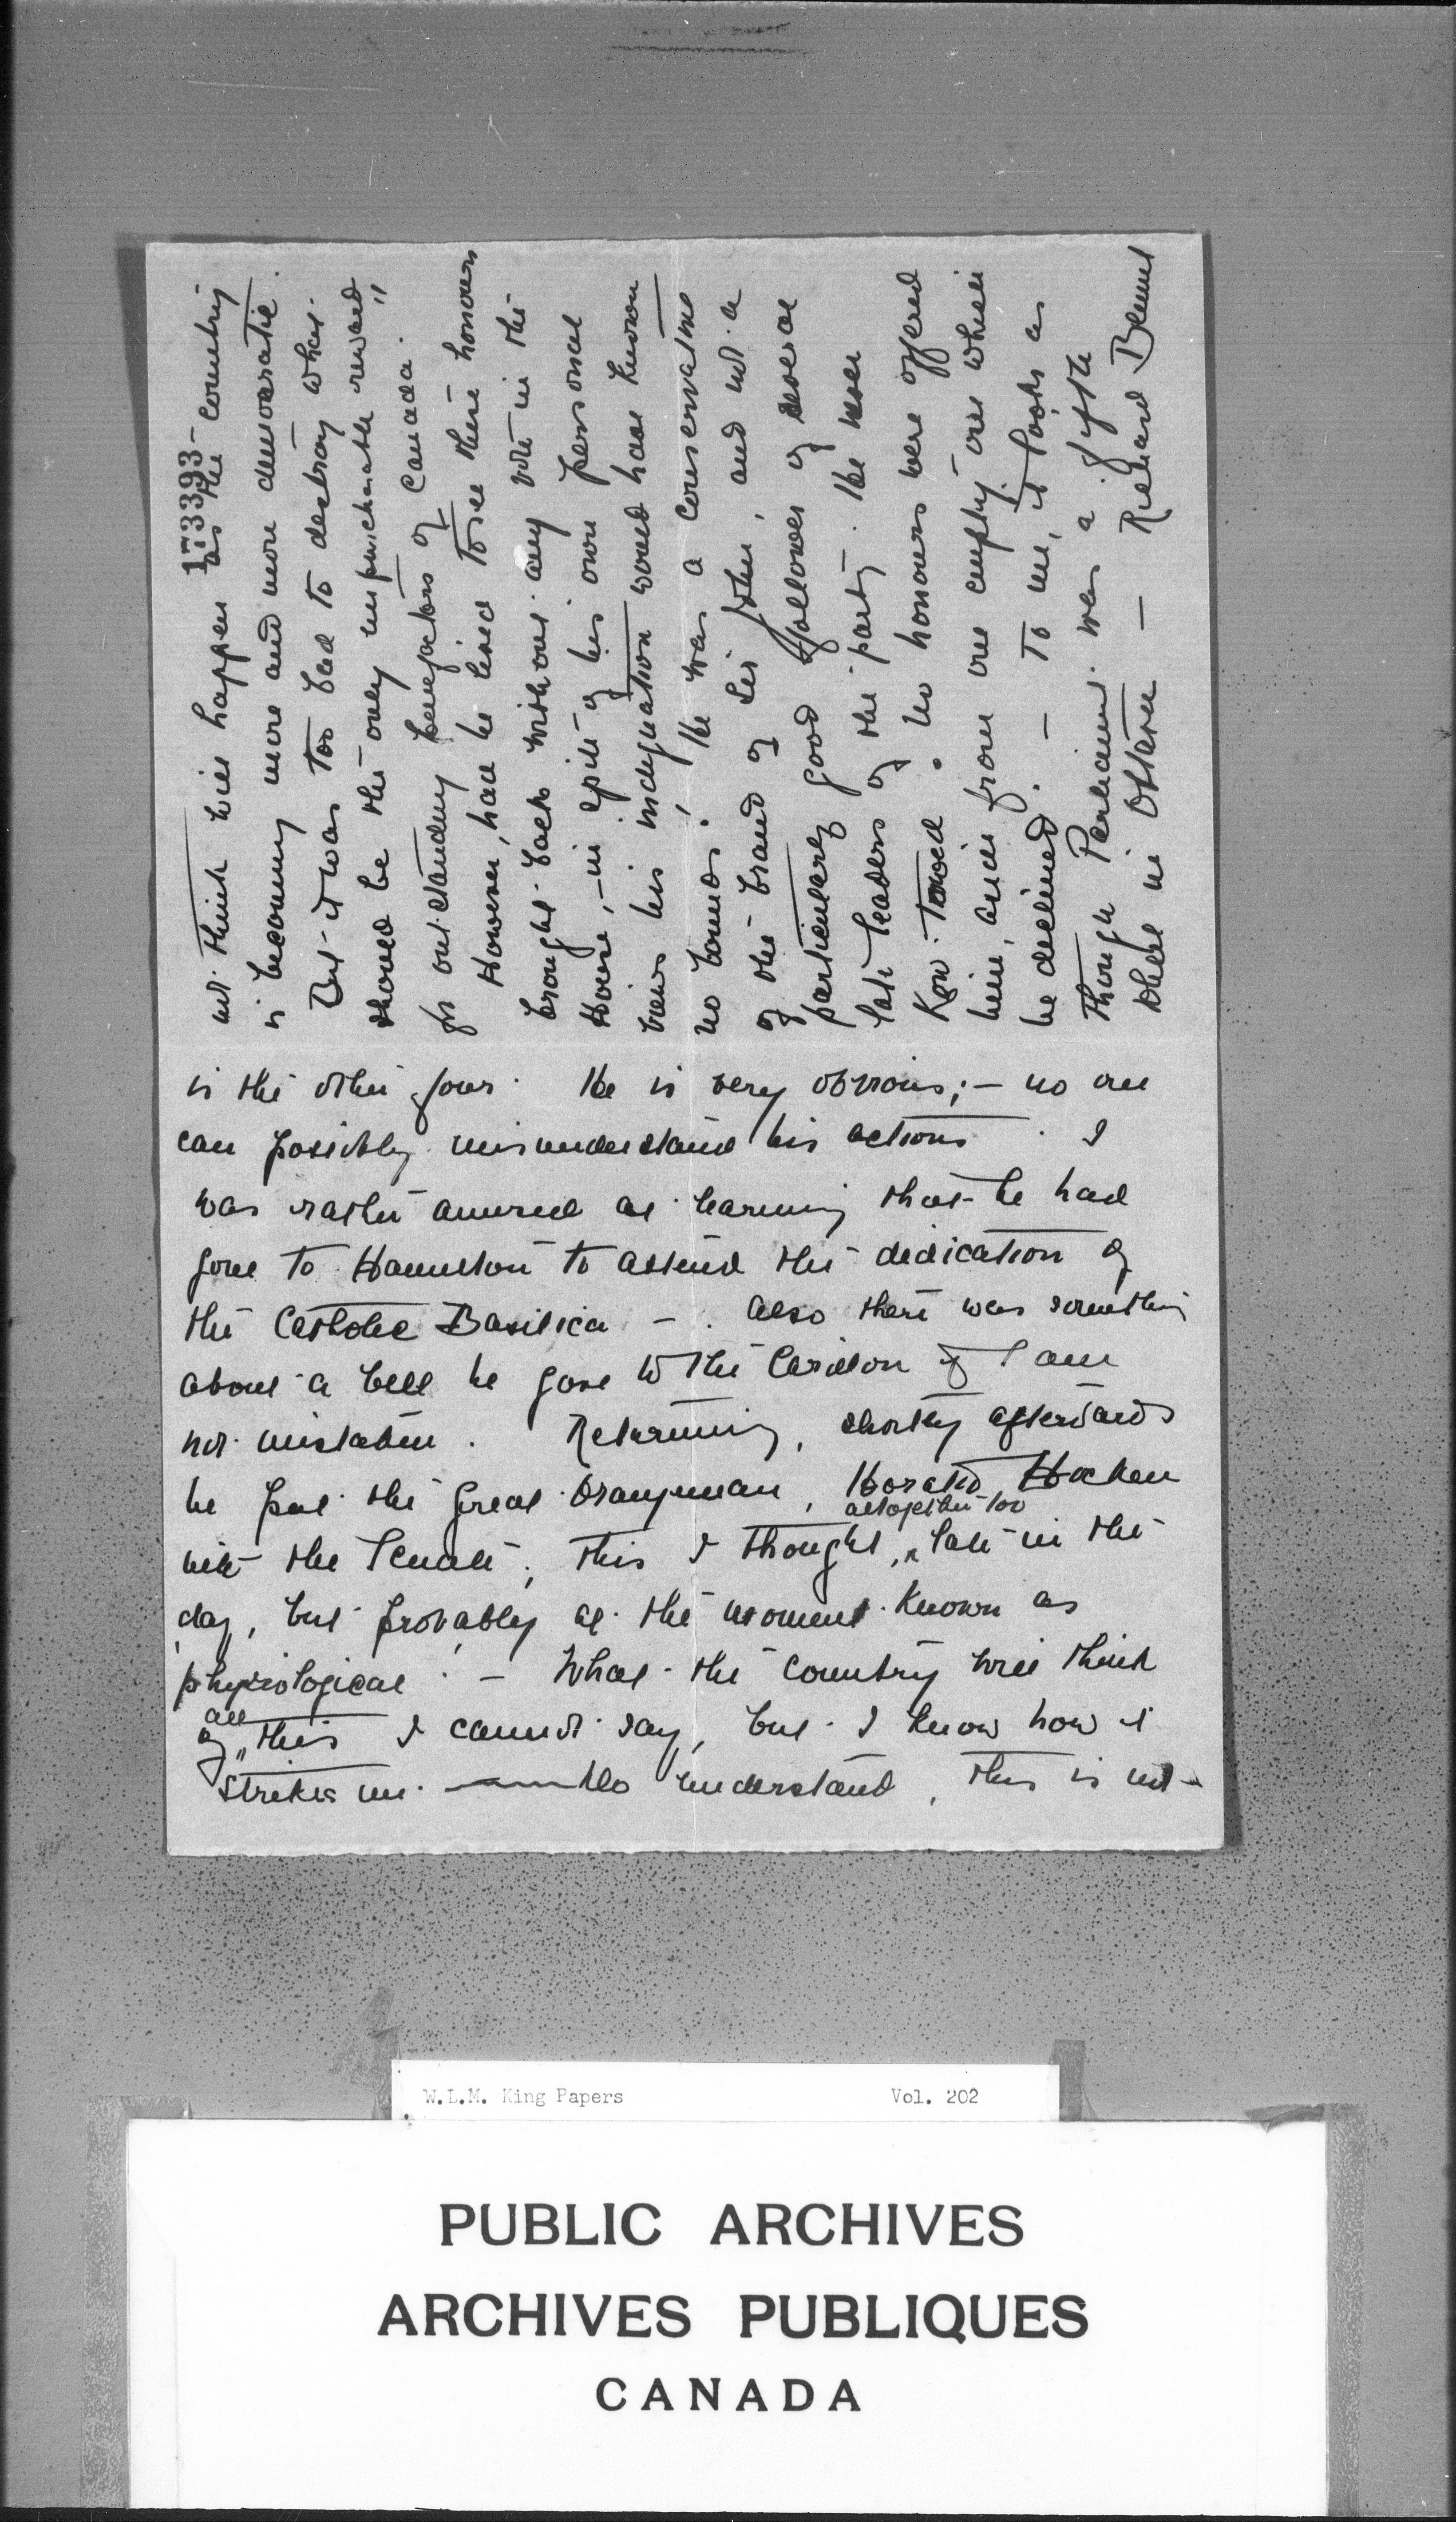 173393
not think will happen as the country
is becoming more and more democratic.
But it was too bad to destroy what
should be the only unpurchasable reward"
for outstanding benefactors of Canada.
However, had he lived to see there honours
brought back without any vote in the
House, – in spite of his own personal
views his indignation would have known
no bounds! He was a conservative
of the brand of Sir John, and not a
particularly good follower of several
late leaders of the party. He never
Kow-Towed. No honours were offered
him, aside from one empty one which
he declined. – To me, it looks as
though Parliament was a fifth
wheel in Ottawa – Richard Bennet
is the other four. He is very obvious; – no one
can possibly misunderstand his actions. I
was rather amused at learning that he had
gone to Hamilton to attend the dedication of
the Catholic Basilica – . Also there was something
about a bell he gave to the Carillon if I am
not mistaken. Returning, shortly afterwards
he put the great Orangeman, Horatio Hocken
altogether too
into the Senate; this I thought, late in the
day, but probably at the moment known as
physiological. – What the country will think
all
of this I cannot say, but I know how it
strikes me. Do understand, this is not –
W.L.M. King Papers Vol. 202
PUBLIC ARCHIVES
ARCHIVES PUBLIQUES
CANADA